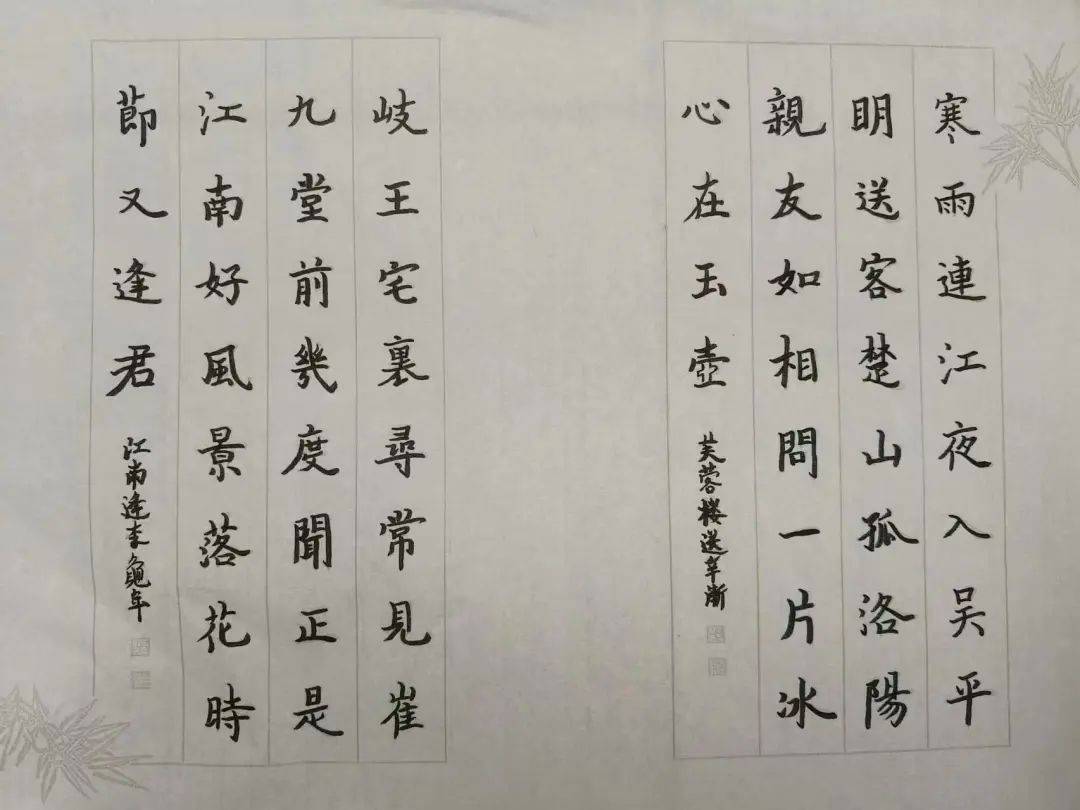 寒雨連江夜入吴平
明送客楚山孤洛陽
親友如相問一片冰
心在玉壺
芙蓉楼送辛漸
岐王宅裏尋常見崔
九堂前幾度聞正是
江南好風景落花時
節又逢君
江南逢李龜年